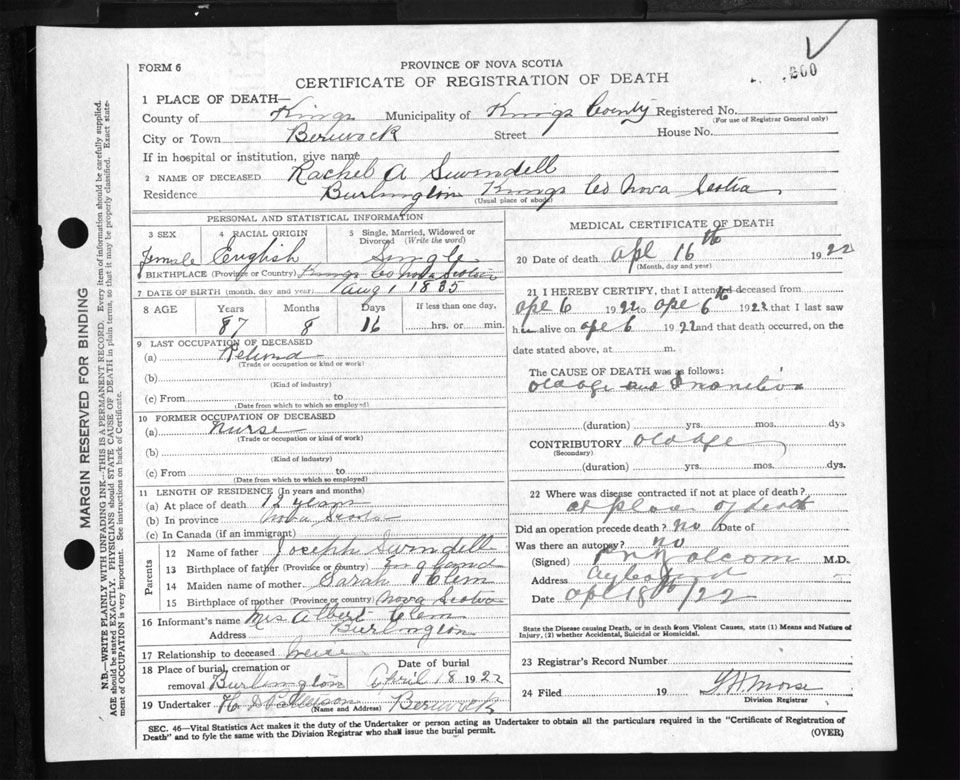 FORM 6
PROVINCE OF NOVA SCOTIA
CERTIFICATE OF REGISTRATION OF DEATH
200
1 PLACE OF DEATH—
County of Kings Municipality of Kings County Registered No.
(For use of Registrar General only)
City or Town Berwick Street House No.
If in hospital or institution, give name
2 NAME OF DECEASED Rachel A Swindell
Residence Burlington Kings Co Nova Scotia
(Usual place of abode)
PERSONAL AND STATISTICAL INFORMATION
3 SEX 4 RACIAL ORIGIN 5 Single, Married, Widowed or Divorced (Write the word)
female English Single
BIRTHPLACE (Province or Country) Kings Co Nova Scotia
7 DATE OF BIRTH (month, day and year) Aug 1 1835
8 AGE Years Months Days If less than one day,
87 8 16 hrs. or min.
9 LAST OCCUPATION OF DECEASED
(a) Retired
(Trade or occupation or kind or work)
(b)
(Kind of industry)
(c) From to
(Date from which to which so employed)
10 FORMER OCCUPATION OF DECEASED
(a) Nurse
(Trade or occupation or kind of work)
(b)
(Kind of industry)
(c) From to
(Date from which to which so employed)
11 LENGTH OF RESIDENCE (In years and months)
(a) At place of death 12 years
(b) In province Nova Scotia
(c) In Canada (if an immigrant)
Parents
12 Name of father Joseph Swindell
13 Birthplace of father (Province or country) England
14 Maiden name of mother Sarah Clem
15 Birthplace of mother (Province or country) Nova Scotia
16 Informant's name Mrs Albert Clem
Address Burlington
17 Relationship to deceased Neice
18 Place of burial, cremation or removal Burlington
Date of burial April 18 1922
19 Undertaker H D Patterson Berwick
(Name and Address)
MEDICAL CERTIFICATE OF DEATH
20 Date of death Apl 16th 1922
(Month, day and year)
21 I HEREBY CERTIFY, that I attended deceased from
Apl 6 1922 to Apl 6th 1922 that I last saw
h alive on Apl 6 1922 and that death occurred, on the
date stated above, at m.
The CAUSE OF DEATH was as follows:
Old age and Inanition
(duration) yrs. mos. dys
CONTRIBUTORY old age
(Secondary)
(duration) yrs. mos. dys.
22 Where was disease contracted if not at place of death?
at place of death
Did an operation precede death? no Date of
Was there an autopsy? no
(Signed) M.D.
Address Aylesford
Date Apl 18th/22
State the Disease causing Death, or in death from Violent Causes, state (1) Means and Nature of
Injury, (2) whether Accidental, Suicidal or Homicidal.
23 Registrar's Record Number
24 Filed 19 Morse
Division Registrar
SEC. 46—Vital Statistics Act makes it the duty of the Undertaker or person acting as Undertaker to obtain all the particulars required in the "Certificate of Registration of
Death" and to fyle the same with the Division Registrar who shall issue the burial permit. (OVER)
MARGIN RESERVED FOR BINDING
N.B.—WRITE PLAINLY WITH UNFADING INK—THIS IS A PERMANENT RECORD. Every item of information should be carefully supplied.
AGE should be stated EXACTLY. PHYSICIANS should STATE CAUSE OF DEATH in plain terms, so that it may be properly classified. Exact state-
ment of OCCUPATION is very important. See instructions on back of Certificate.